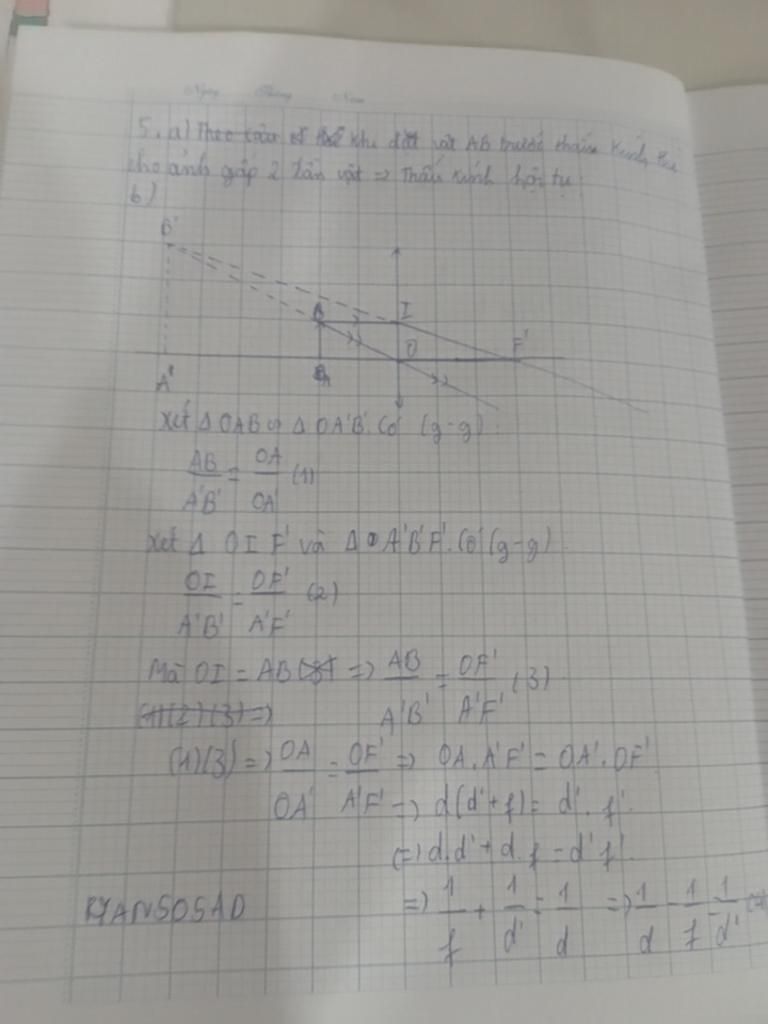 Ngày Tháng Năm
5. a) Theo khi đặt vật AB trước thấu kính
cho ảnh gấp 2 lần vật => Thấu kính hội tụ
b)
B'
B I
O F'
A' A
Xét Δ OAB Δ OA'B' Có (g-g)
AB/A'B' = OA/OA' (1)
Xét Δ OIF' và Δ A'B'F'. Có (g-g)
OI/A'B' = OF'/A'F' (2)
Mà OI = AB => AB/A'B' = OF'/A'F' (3)
(1)(2)(3) =>
(1)(3) => OA/OA' = OF'/A'F' => OA.A'F' = OA'.OF'
=> d(d'+f) = d'.f'
(=) d.d' + d.f = d'f'
=> 1/f + 1/d' = 1/d => 1/d - 1/f = 1/d'